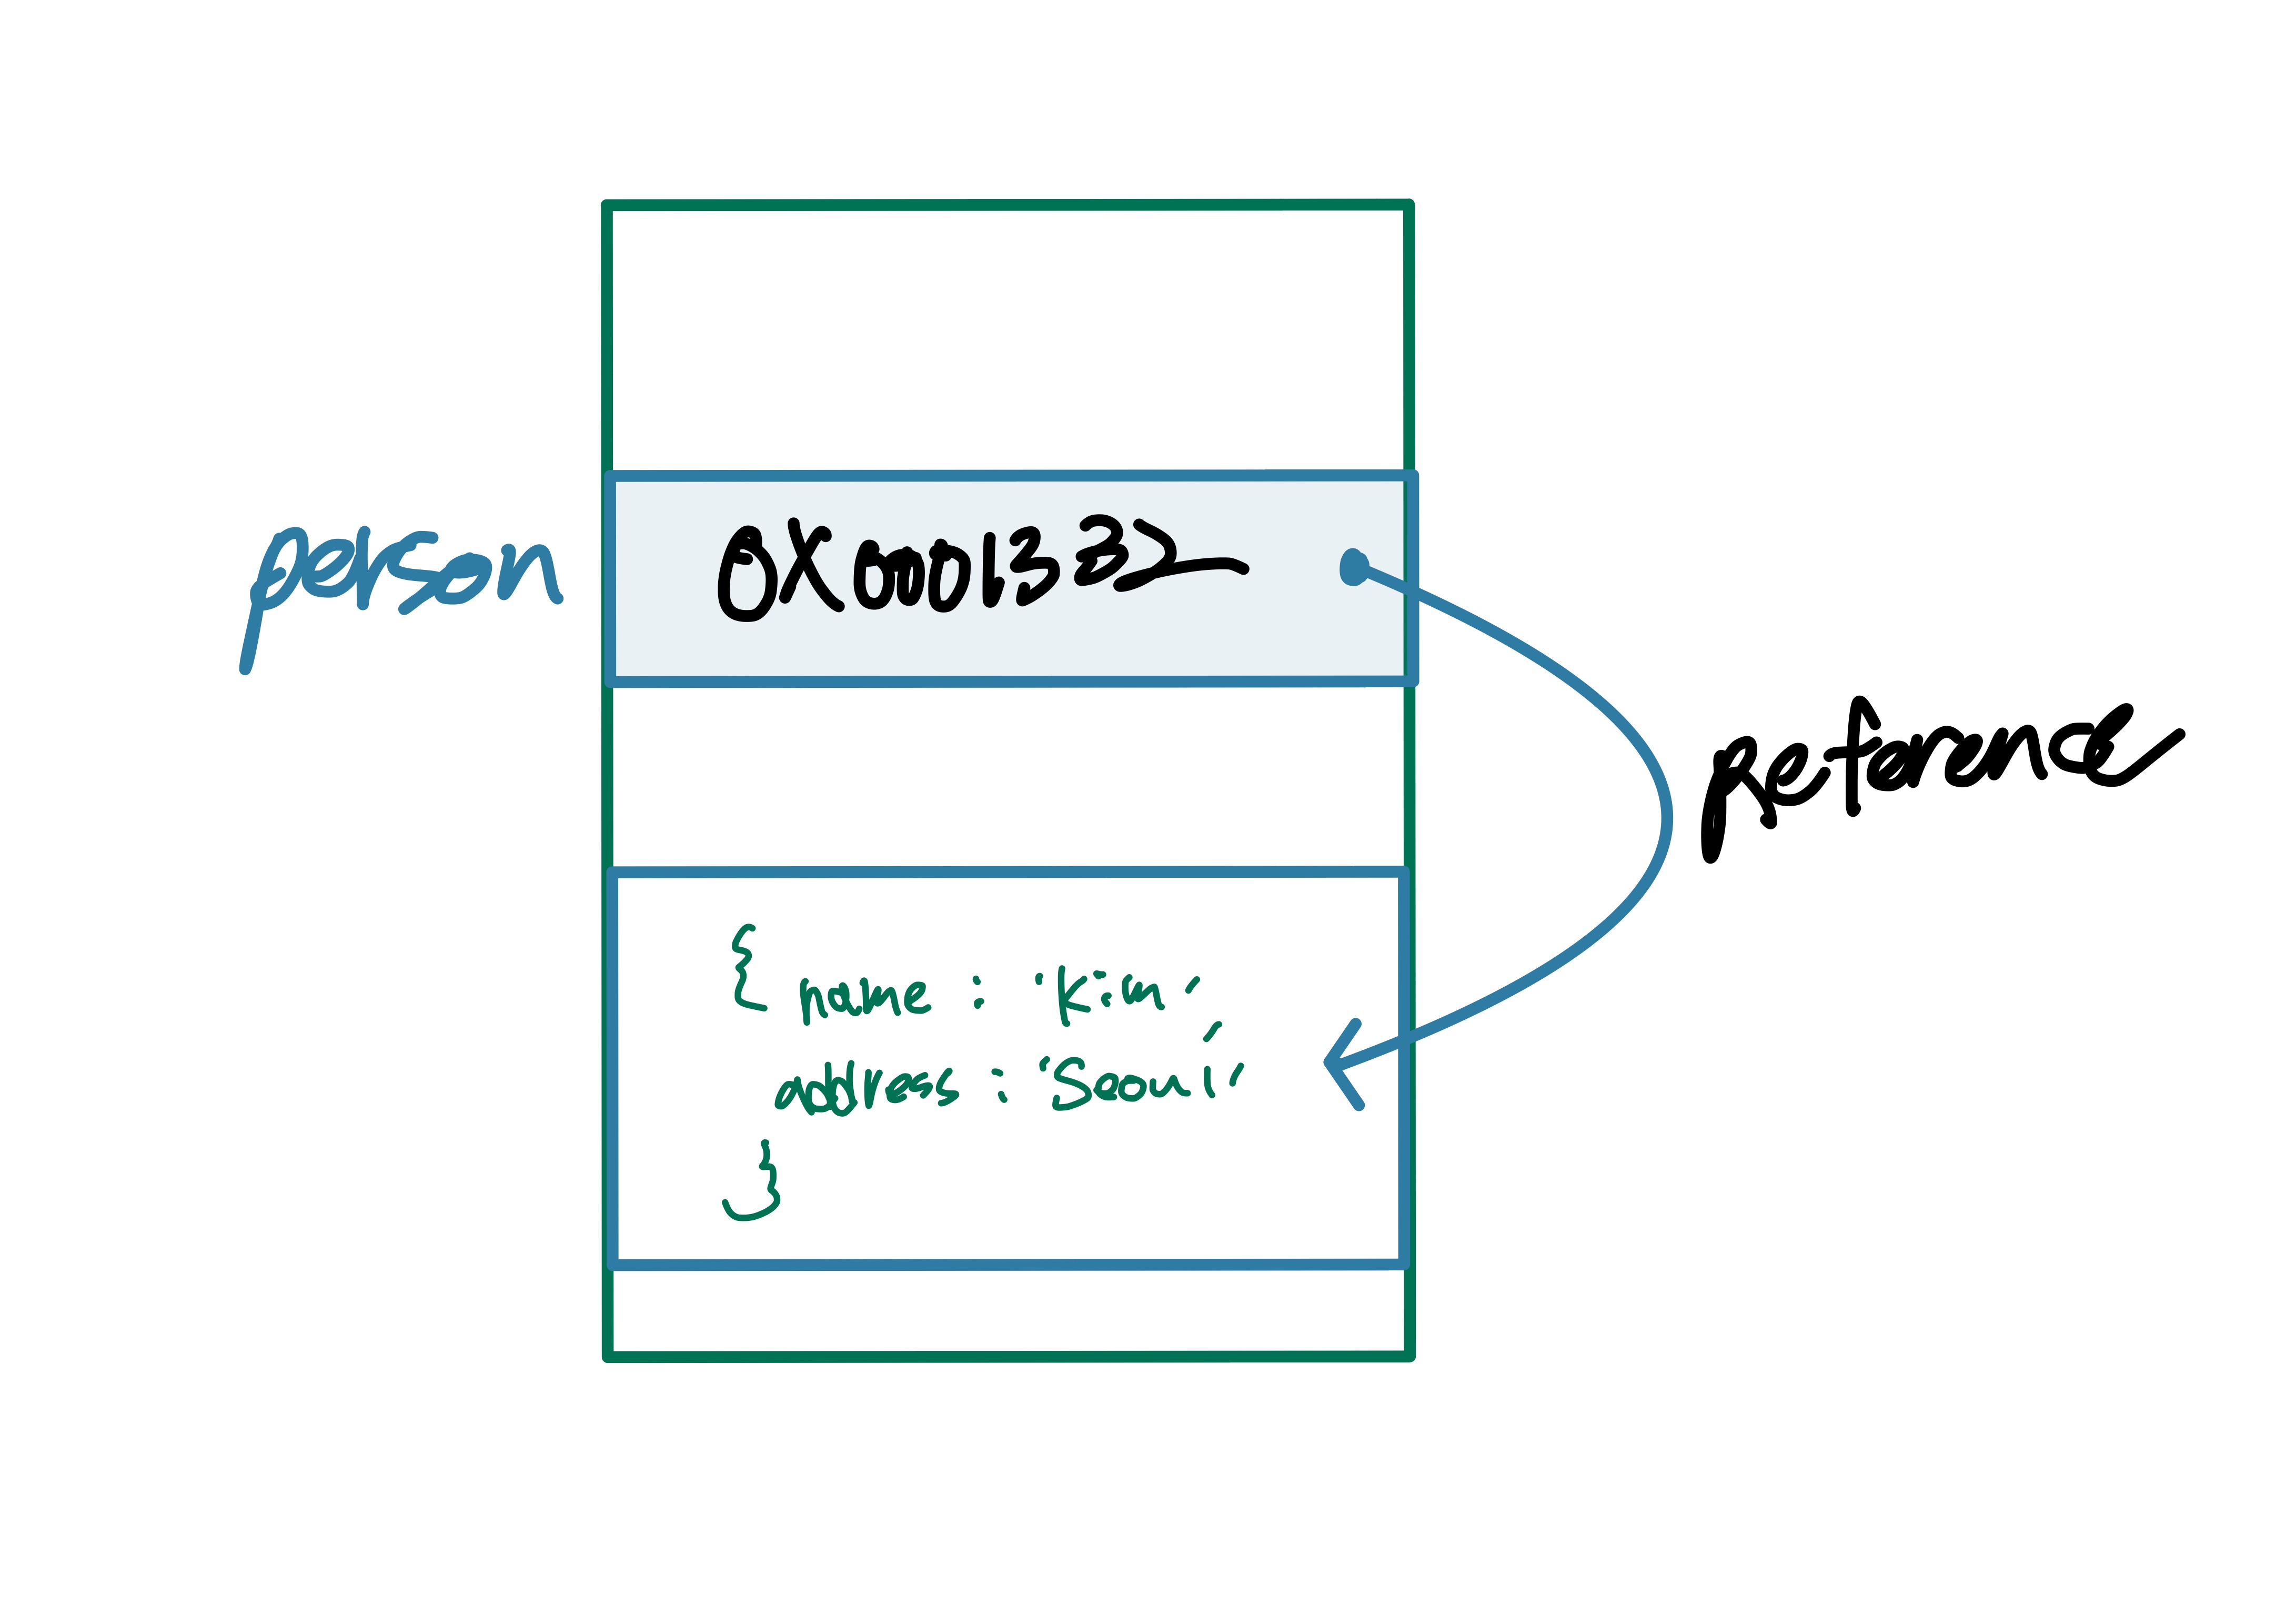 person
0X0001332
Reference
{ name : 'Kim',
address : 'Seoul'
}